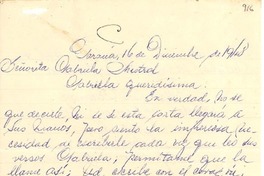 916
Ceraña, 16 de Diciembre de 1948
Señorita Gabriela Mistral
Gabriela queridísima.
En verdad, no se
que decirle, si se esta carta llegará a
sus manos, pero siento la imperiosa ne
cesidad de escribirle cada vez que leo sus
versos Gabriela; permítame que la
llame así; Ud. escribe con el corazón,